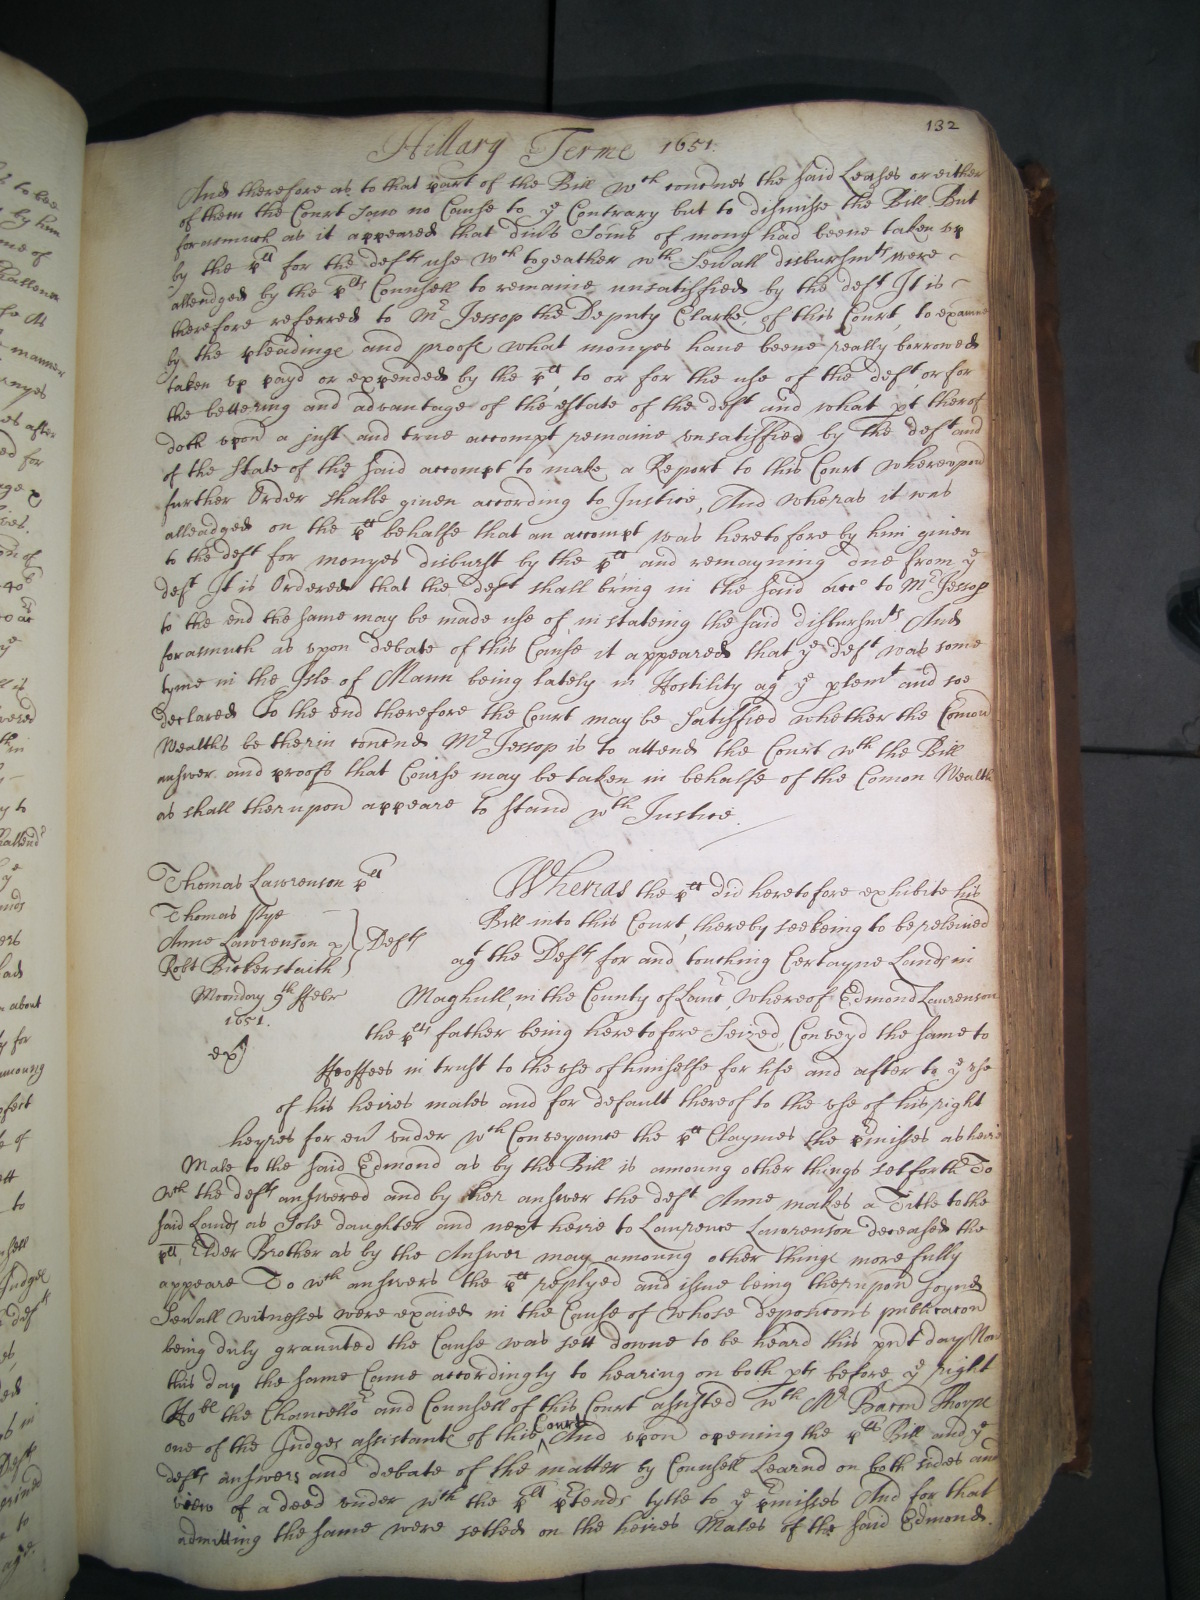 132
Hillary Terme 1651.
And therefore as to that part of the Bill wth concernes the said Leases or either
of them the Court saw no Cause to ye Contrary but to dismisse the Bill But
forasmuch as it appeared that divs Soms of mony had beene taken vp
by the plt for the defts use wch togeather wth Sevall disbursmts were
alleadged by the plts Counsell to remaine unsatisfied by the deft It is
therefore referred to Mr Jessop the Deputy Clarke of this Court, to examine
by the pleadinge and proofe what monyes have beene really borrowed
taken vp payd or expended by the plt, to or for the use of the deft, or for
the bettering and advantage of the estate of the deft and what pt therof
doth vpon a just and true accompt remaine vnsatisfied by the deft and
of the State of the said accompt to make a Report to this Court wherevpon
further Order shalbe given according to Justice, And wheras it was
alleadged on the plt behalfe that an accompt was heretofore by him given
to the deft for monyes disburst by the plt and remayning due from ye
deft It is Ordered that the deft shall bring in the said acco to Mr Jessop
to the end the same may be made use of, in stateing the said disbursmts And
forasmuch as vpon debate of this Cause it appeared that ye deft was some
tyme in the Isle of Mann being lately in Hostility agt ye plemt and soe
declared To the end therefore the Court may be satisfied whether the Comon
Wealth be therin concned Mr Jessop is to attend the Court wth the Bill
answer and proofs that Course may be taken in behalfe of the Comon Wealth
as shall therupon appeare to stand wth Justice.
Thomas Lawrenson plt
Thomas Tye
Anne Lawrenson &
Robt Bickerstaith
Defts
Moonday 9th ffebr
1651.
exd
Wheras the plt did heretofore exhibite his
Bill into this Court, thereby seekeing to be releived
agt the Defts for and touching Certayne Lands in
Maghull, in the County of Lanc, whereof Edmond Lawrenson
the plts father being heretofore Seized, Conveyd the same to
ffeoffees in trust to the vse of himselfe for life and after to ye vse
of his heires males and for default thereof to the vse of his right
heyres for ev vnder wch Conveyance the plt Claymes the pmisses as heire
Male to the said Edmond as by the Bill is amoung other things set forth To
wch the defts answered and by her answer the deft Anne makes a Title to the
said Lands as Sole daughter and next heire to Lawrence Lawrenson deceased the
plts Elder Brother as by the Answer may amoung other things more fully
appeare To wch answers the plt replyed and issue being therupon Joyned
Sevall witnesses were exaied in the Cause of whose deposicons publicacon
being duly graunted the Cause was sett downe to be heard this pnt day Now
this day the same Came accordingly to hearing on both pts before ye right
Hoble the Chancellor and Counsell of this Court assisted wth Mr Baron Thorpe
one of the Judges assistants of this Court And vpon opening the plts Bill and ye
defts answers and debate of the matter by Counsell Learnd on both sides and
view of a deed vnder wch the plt ptends tytle to ye pmisses And for that
admitting the same were setled on the heires Males of the said Edmond.